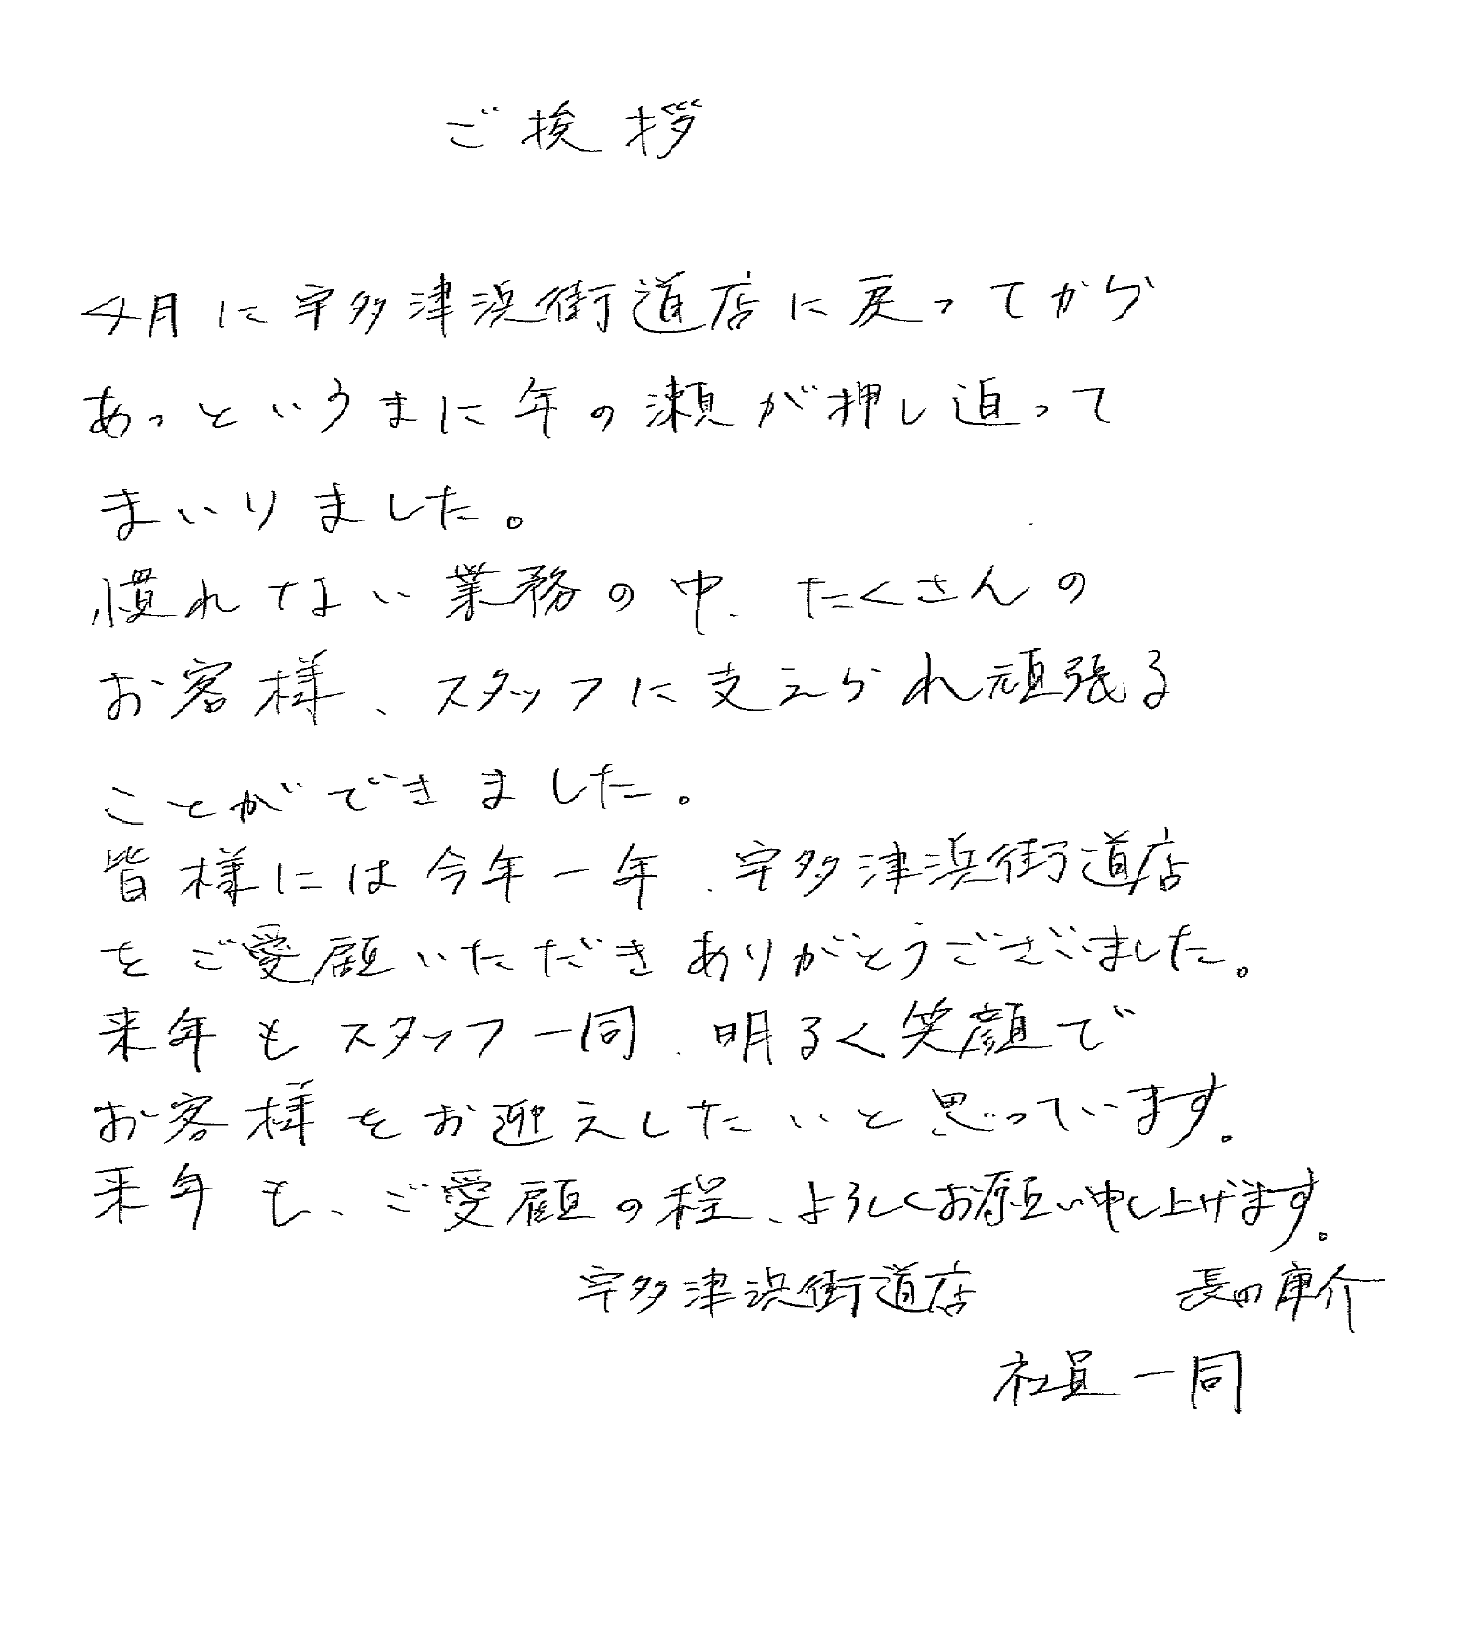 ご挨拶
4月に宇多津浜街道店に戻ってから
あっというまに年の瀬が押し迫って
まいりました。
慣れない業務の中、たくさんの
お客様、スタッフに支えられ頑張る
ことができました。
皆様には今年一年、宇多津浜街道店
をご愛顧いただきありがとうございました。
来年もスタッフ一同、明るく笑顔で
お客様をお迎えしたいと思っています。
来年も、ご愛顧の程、よろしくお願い申し上げます。
宇多津浜街道店 長田庫介
社員一同